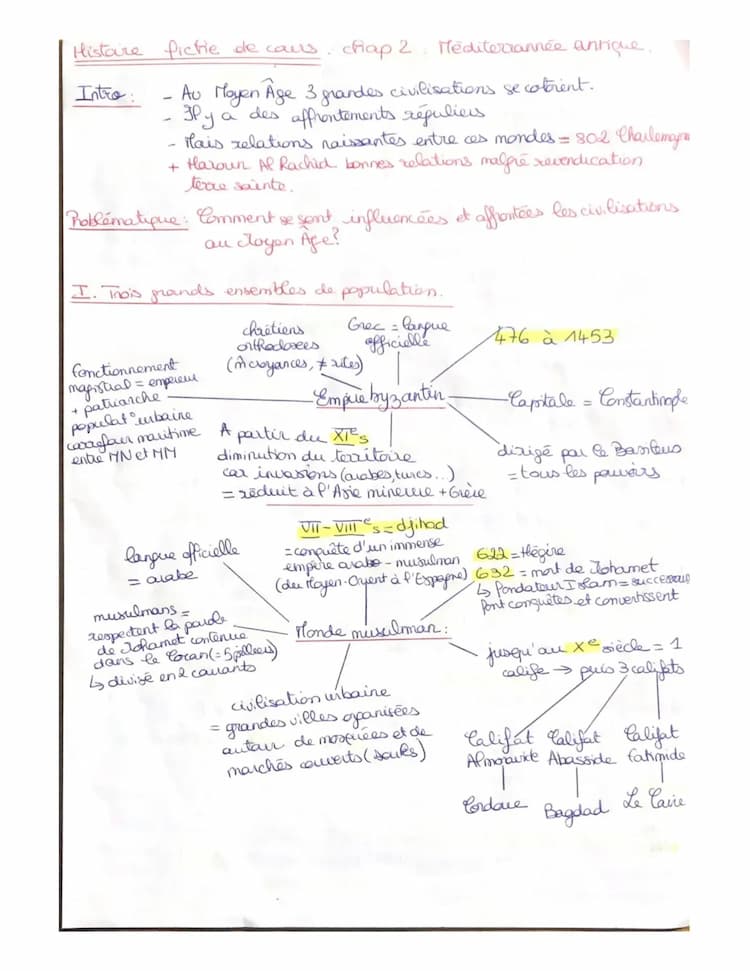 Histoire fiche de cours. chap 2 : Méditerrannée antique.
Intro : - Au Moyen Âge 3 grandes civilisations se cotoient.
- Il y a des affrontements réguliers
- Mais relations naissantes entre ces mondes = 802 Charlemagn
+ Haroun Al Rachid bonnes relations malgré revendication
terre sainte.
Problématique : Comment se sont influencées et affrontées les civilisations
au Moyen Âge?
I. Trois grands ensembles de population.
chrétiens
orthodoxes
(m̂ croyances, ≠ rites)
Grec = langue
officielle
476 à 1453
fonctionnement
magistral = empereur
+ patriarche
populat° urbaine
carrefour maritime
entre MN et MM
Empire byzantin
Capitale = Constantinople
A partir du XIe s
diminution du territoire
car invasions (arabes, turcs...)
= réduit à l'Asie mineure + Grèce
dirigé par le Basileus
= tous les pouvoirs
VII - VIIIe s = djihad
= conquête d'un immense
empire arabo-musulman
(du Moyen-Orient à l'Espagne)
langue officielle
= arabe
622 = Hégire
632 = mort de Mohamet
↳ fondateur Islam = successeur
font conquêtes et convertissent
musulmans =
respectent la parole
de Mohamet contenue
dans le Coran (= 5 piliers)
↳ divisé en 2 courants
Monde musulman :
jusqu'au Xe siècle = 1
calife → puis 3 califats
civilisation urbaine
= grandes villes organisées
autour de mosquées et de
marchés couverts (souks)
Califat Califat Califat
Almoravide Abasside fatimide
Cordoue Bagdad Le Caire